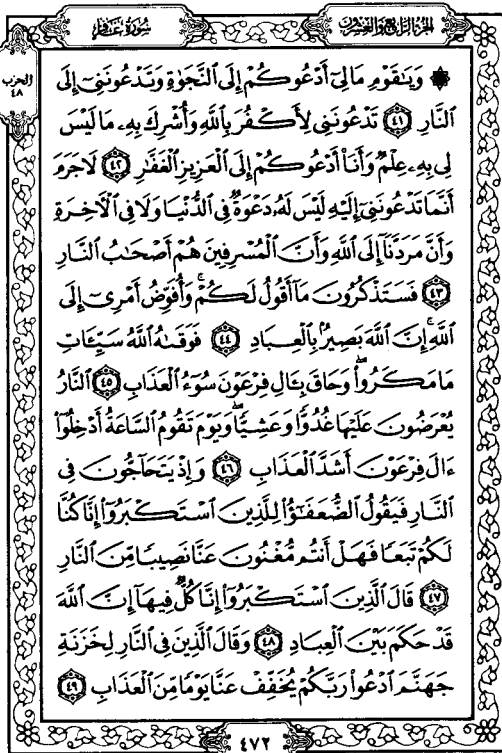 الجزء الرابع والعشرون
سورة غافر
الحزب
٤٨
۞ وَيَٰقَوْمِ مَا لِيٓ أَدْعُوكُمْ إِلَى ٱلنَّجَوٰةِ وَتَدْعُونَنِيٓ إِلَى
ٱلنَّارِ ٤١ تَدْعُونَنِي لِأَكْفُرَ بِٱللَّهِ وَأُشْرِكَ بِهِۦ مَا لَيْسَ
لِي بِهِۦ عِلْمٌ وَأَنَا۠ أَدْعُوكُمْ إِلَى ٱلْعَزِيزِ ٱلْغَفَّٰرِ ٤٢ لَا جَرَمَ
أَنَّمَا تَدْعُونَنِيٓ إِلَيْهِ لَيْسَ لَهُۥ دَعْوَةٌ فِي ٱلدُّنْيَا وَلَا فِي ٱلْأَخِرَةِ
وَأَنَّ مَرَدَّنَآ إِلَى ٱللَّهِ وَأَنَّ ٱلْمُسْرِفِينَ هُمْ أَصْحَٰبُ ٱلنَّارِ
٤٣ فَسَتَذْكُرُونَ مَآ أَقُولُ لَكُمْ ۚ وَأُفَوِّضُ أَمْرِيٓ إِلَى
ٱللَّهِ ۚ إِنَّ ٱللَّهَ بَصِيرٌۢ بِٱلْعِبَادِ ٤٤ فَوَقَىٰهُ ٱللَّهُ سَيِّـَٔاتِ
مَا مَكَرُوا۟ ۖ وَحَاقَ بِـَٔالِ فِرْعَوْنَ سُوٓءُ ٱلْعَذَابِ ٤٥ ٱلنَّارُ
يُعْرَضُونَ عَلَيْهَا غُدُوًّا وَعَشِيًّا ۖ وَيَوْمَ تَقُومُ ٱلسَّاعَةُ أَدْخِلُوٓا۟
ءَالَ فِرْعَوْنَ أَشَدَّ ٱلْعَذَابِ ٤٦ وَإِذْ يَتَحَآجُّونَ فِي
ٱلنَّارِ فَيَقُولُ ٱلضُّعَفَٰٓؤُا۟ لِلَّذِينَ ٱسْتَكْبَرُوٓا۟ إِنَّا كُنَّا
لَكُمْ تَبَعًا فَهَلْ أَنتُم مُّغْنُونَ عَنَّا نَصِيبًا مِّنَ ٱلنَّارِ
٤٧ قَالَ ٱلَّذِينَ ٱسْتَكْبَرُوٓا۟ إِنَّا كُلٌّ فِيهَآ إِنَّ ٱللَّهَ
قَدْ حَكَمَ بَيْنَ ٱلْعِبَادِ ٤٨ وَقَالَ ٱلَّذِينَ فِي ٱلنَّارِ لِخَزَنَةِ
جَهَنَّمَ ٱدْعُوا۟ رَبَّكُمْ يُخَفِّفْ عَنَّا يَوْمًا مِّنَ ٱلْعَذَابِ ٤٩
٤٧٢